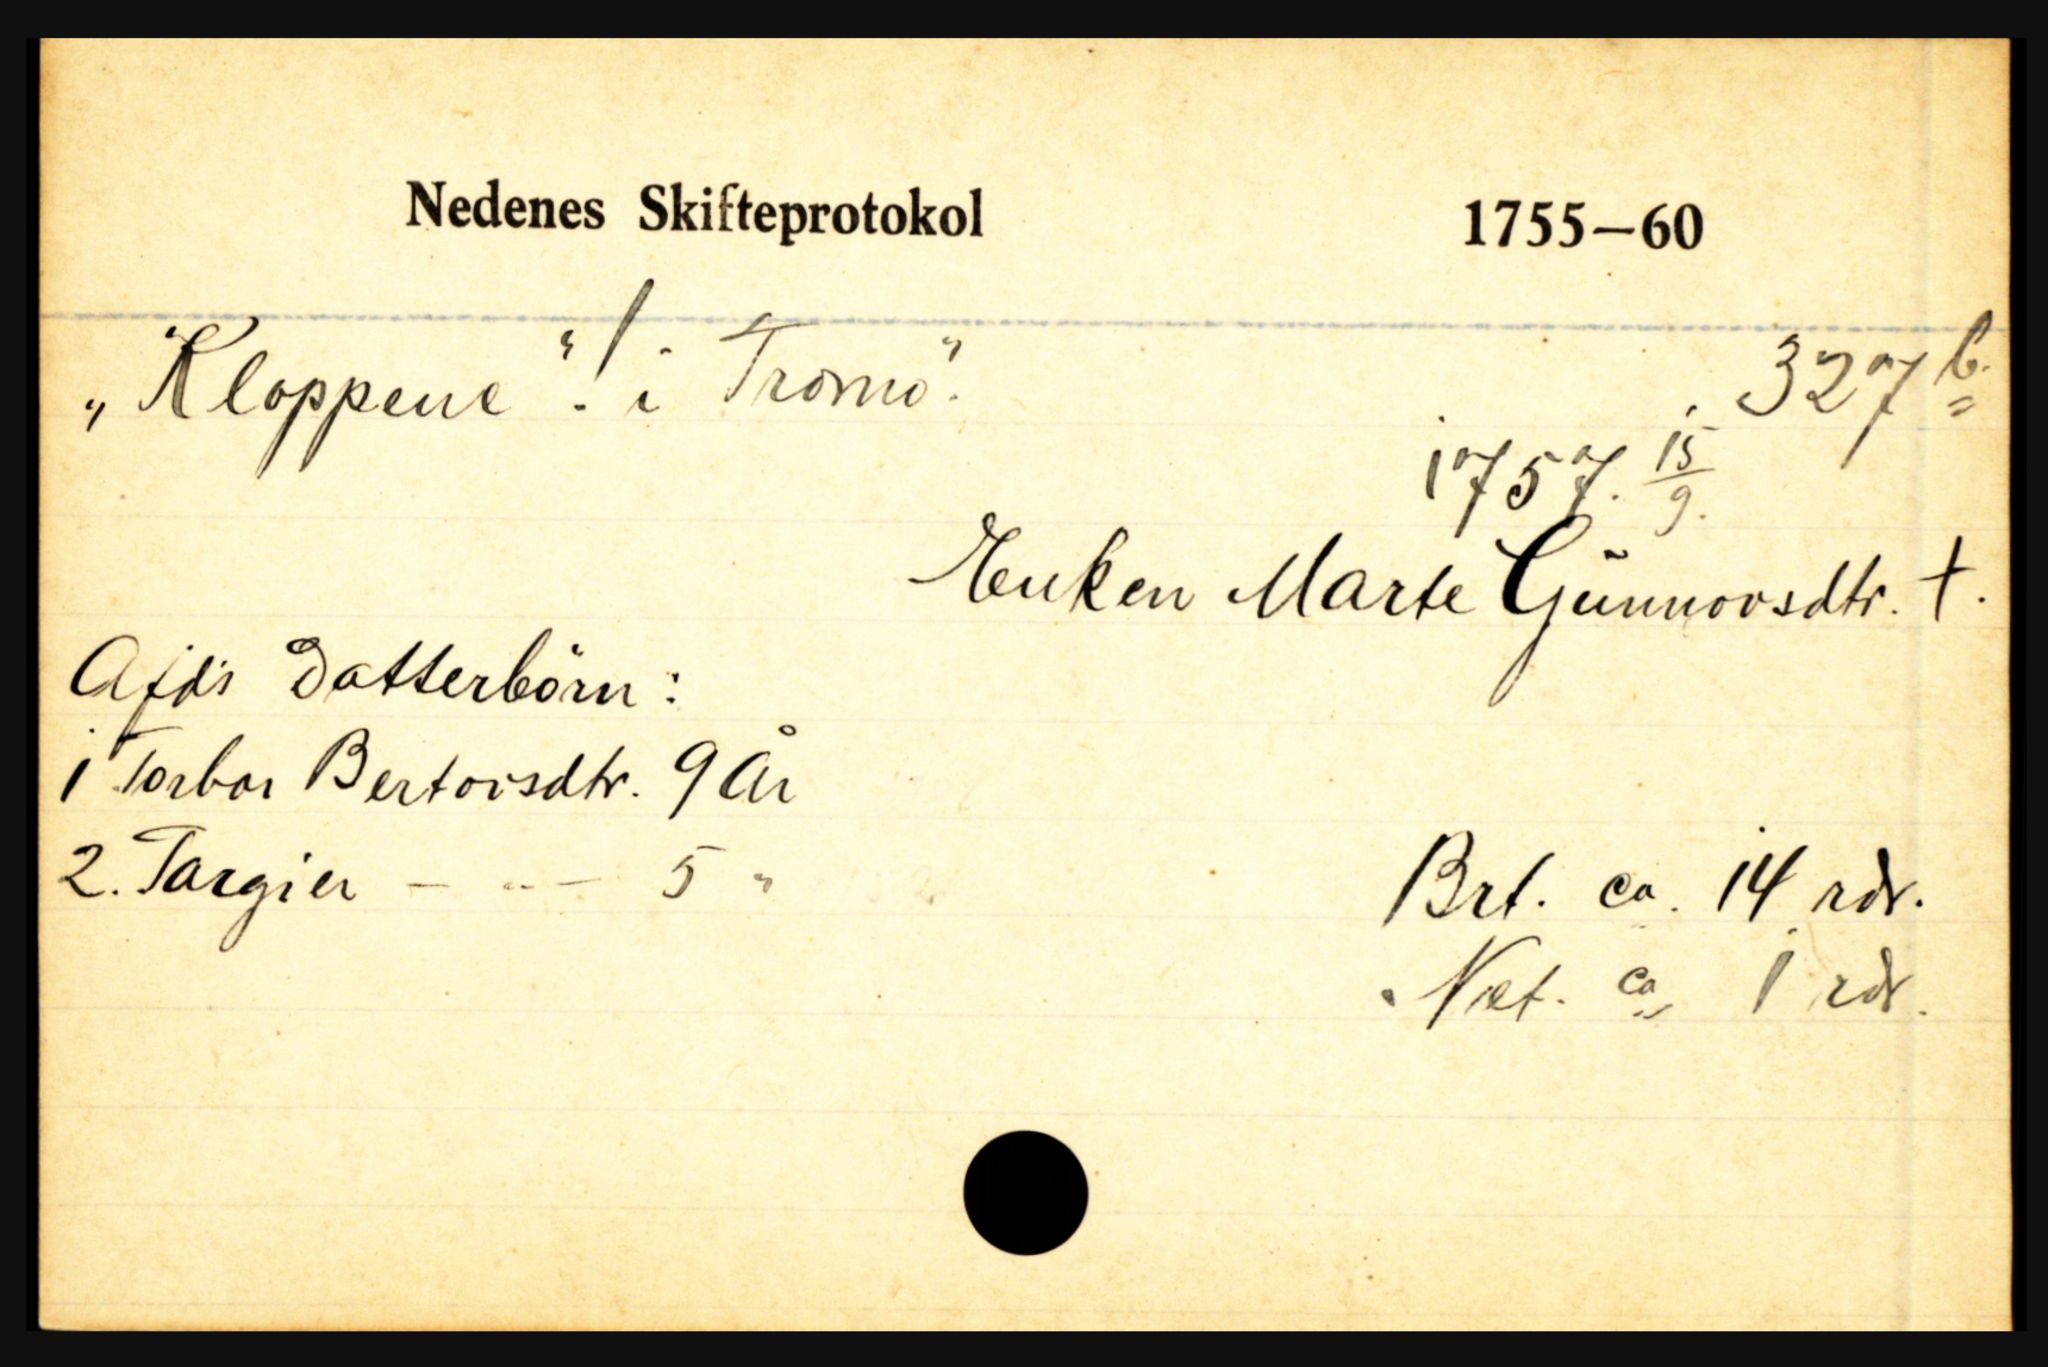 Nedenes Skifteprotokol 1755—60
„Kloppene“! i Tromö“. 327 b.
1757. 15/9.
Enken Marte Gunnorsdtr. †.
Afd's Datterbörn:
1 Torbor Bertorsdtr. 9 År
2. Targier — " — 5 "
Brt. ca. 14 rdr.
Net. ca 1 rdr.